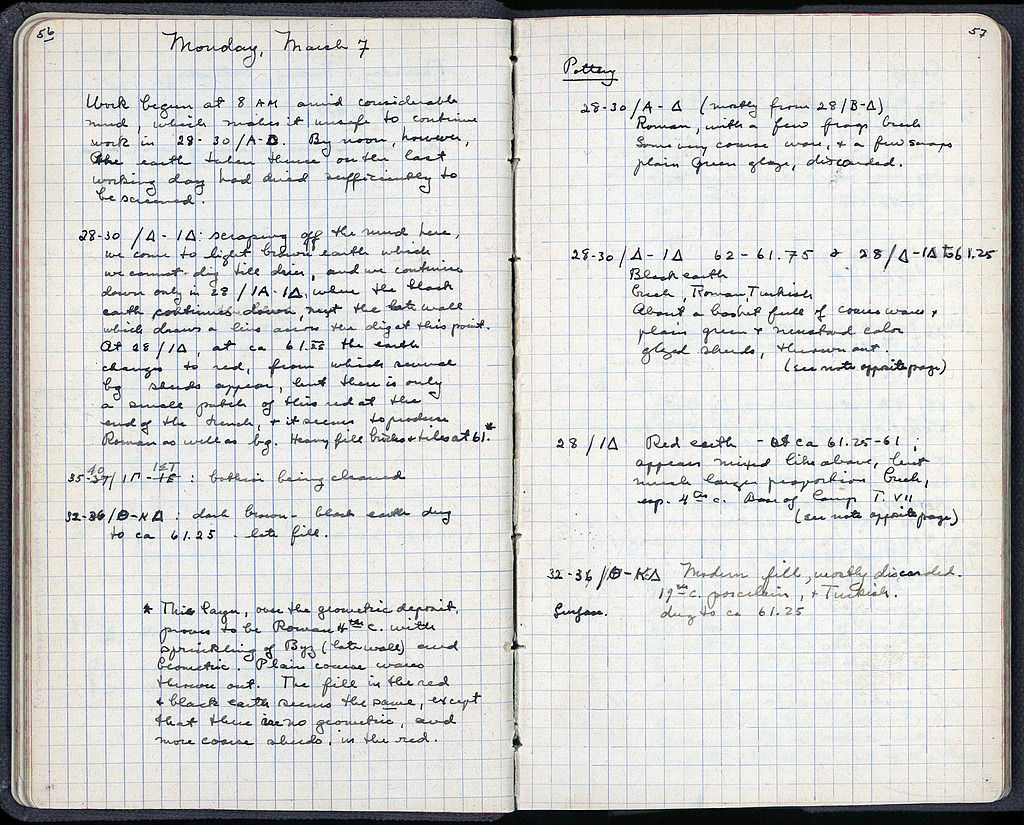 56
Monday, March 7
Work began at 8 AM amid considerable
mud, which makes it unsafe to continue
work in 28-30/A-B. By noon, however,
the earth taken thence on the last
working day had dried sufficiently to
be screened.
28-30/Δ-1Δ: scraping off the mud here,
we come to light brown earth which
we cannot dig till drier, and we continue
down only in 28/1A-1Δ, where the black
earth continues down, next the late wall
which draws a line across the dig at this point.
At 28/1Δ, at ca 61.25 the earth
changes to red, from which several
bg sherds appear, but there is only
a small patch of this red at the
end of the trench, & it seems to produce
Roman as well as bg. Heavy fill bricks & tiles at 61.*
: bothroi being cleaned
32-36/Θ-KΔ: dark brown-black earth dug
to ca 61.25 - late fill.
* This layer, over the geometric deposit,
proves to be Roman 4th c. with
sprinkling of Byz (late wall) and
Geometric. Plain coarse wares
thrown out. The fill in the red
& black earth seems the same, except
that there are no geometric, and
more coarse sherds, in the red.
57
Pottery
28-30/A-Δ (mostly from 28/B-Δ)
Roman, with a few frags Greek
Some very coarse ware, & a few scraps
plain green glaze, discarded.
28-30/Δ-1Δ 62-61.75 & 28/Δ-1Δ to 61.25
Black earth
Greek, Roman, Turkish
About a basket full of coarse wares &
plain green & mustard color
glzed sherds, thrown out.
(see note opposite page)
28/1Δ Red earth - at ca 61.25-61;
appears mixed like above, but
much larger proportion Greek,
esp. 4th c. Base of lamp T. VII
(see note opposite page)
32-36/Θ-KΔ Modern fill, mostly discarded.
19th c. porcelain, & Turkish.
Surface. dug to ca 61.25